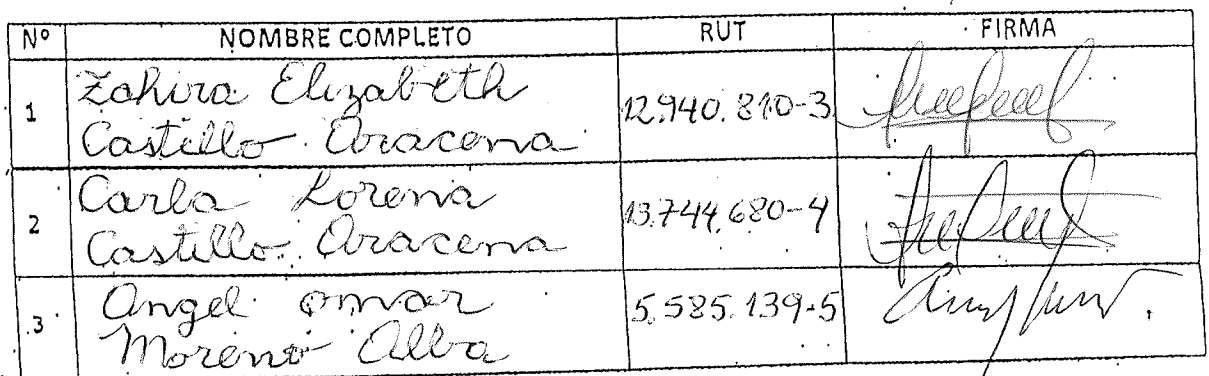 Nº NOMBRE COMPLETO RUT FIRMA
1 Zahira Elizabeth
Castillo Aracena 12.940.810-3
2 Carla Lorena
Castillo Aracena 13.744.680-4
3 Angel omar
Moreno Alba 5.585.139-5